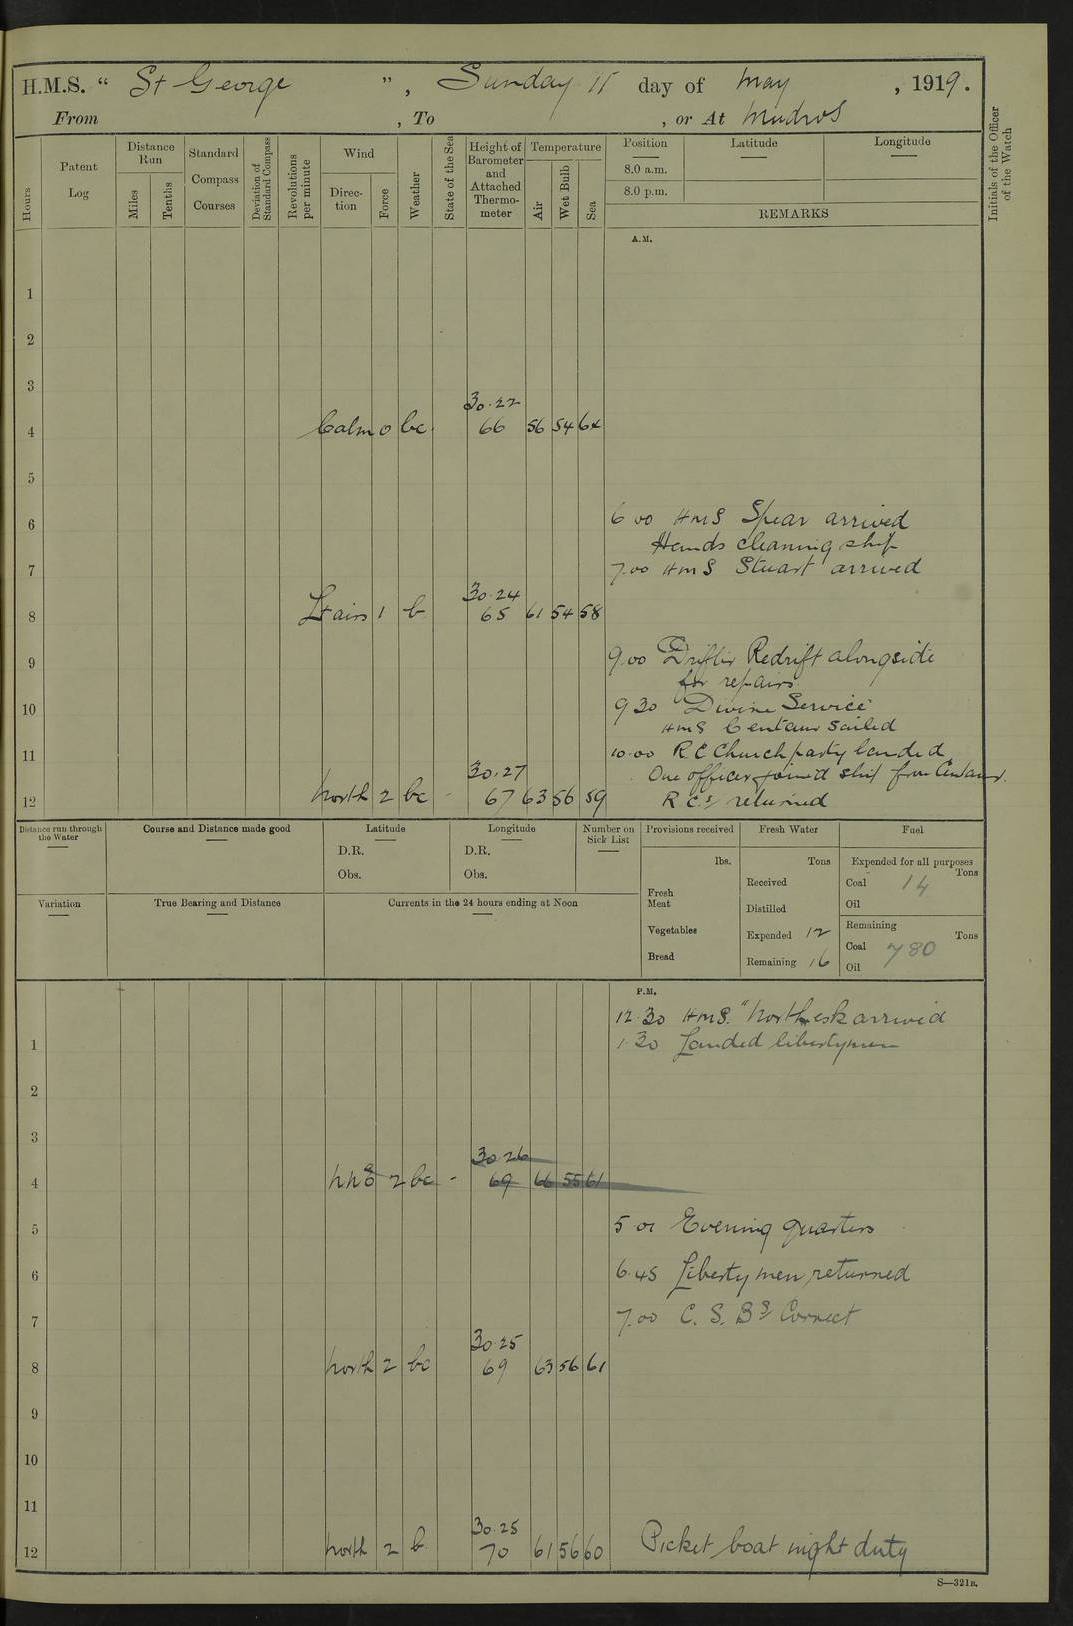 H.M.S. “ St George ” , Sunday 11 day of May , 1919.
From , To , or At Mudros
Hours
Patent Log
Distance Run
Miles
Tenths
Standard Compass Courses
Deviation of Standard Compass
Revolutions per minute
Wind
Direction
Force
Weather
State of the Sea
Height of Barometer and Attached Thermometer
Temperature
Air
Wet Bulb
Sea
Position
8.0 a.m.
8.0 p.m.
Latitude
Longitude
REMARKS
Initials of the Officer of the Watch
A.M.
1
2
3
30.22
4 Calm 0 bc. 66 56 54 64
5
6 6 00 HMS Spear arrived
Hands cleaning ship
7 7.00 HMS Stuart arrived
30.24
8 Lt airs 1 b 65 61 54 58
9 9.00 Drifter Redrift alongside
for repairs
10 9 30 Divine Service
HMS Centaur sailed
11 10.00 R C Church party landed
30.27 One officer joined ship from Centaur.
12 North 2 bc - 67 63 56 59 R Cs returned
Distance run through the Water
Course and Distance made good
Latitude
D.R.
Obs.
Longitude
D.R.
Obs.
Number on Sick List
Provisions received
lbs.
Fresh Meat
Vegetables
Bread
Fresh Water
Tons
Received
Distilled
Expended 12
Remaining 16
Fuel
Expended for all purposes
Tons
Coal 14
Oil
Remaining
Tons
Coal 780
Oil
Variation
True Bearing and Distance
Currents in the 24 hours ending at Noon
P.M.
12.30 HMS. "Northesk arrived
1 1.30 Landed libertymen
2
3
30.26
4 2 bc - 69 66 55 61
5 5 01 Evening quarters
6 6.45 Liberty men returned
7 7.00 C. S. Bs Correct
30.25
8 North 2 bc 69 63 56 61
9
10
11
30.25
12 North 2 b 70 61 56 60 Picket boat night duty
S—321B.